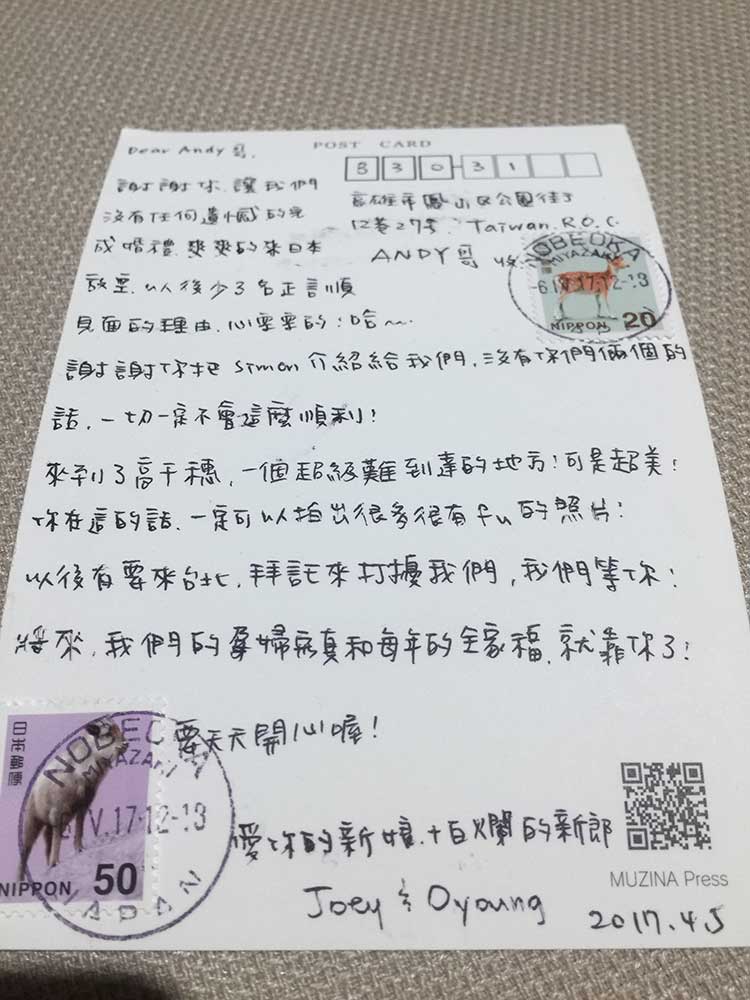 POST CARD
830-31
高雄市鳳山區公園街3
12巷27号. Taiwan. R.O.C.
ANDY哥 收.
Dear Andy 哥.
謝謝你.讓我們
沒有任何遺憾的完
成婚禮.爽爽的來日本
放空.以後少了名正言順
見面的理由.心空空的!哈~
謝謝你把 Simon 介紹給我們.沒有你們倆個的
話.一切一定不會這麼順利!
來到了高千穗.一個超級難到達的地方!可是超美!
你在這的話.一定可以拍出很多很有 fu 的照片!
以後有要來台北.拜託來打擾我們,我們等你!
將來.我們的孕婦寫真和每年的全家福.就靠你了!
要天天開心喔!
愛你的新娘.十白爛的新郎
Joey & Oyoung
2017.4.5
NOBEOKA
MIYAZAKI
-6.IV.17.12-18
NIPPON 20
日本郵便
NIPPON 50
NOBEOKA
MIYAZAKI
6.IV.17.12-18
JAPAN
MUZINA Press